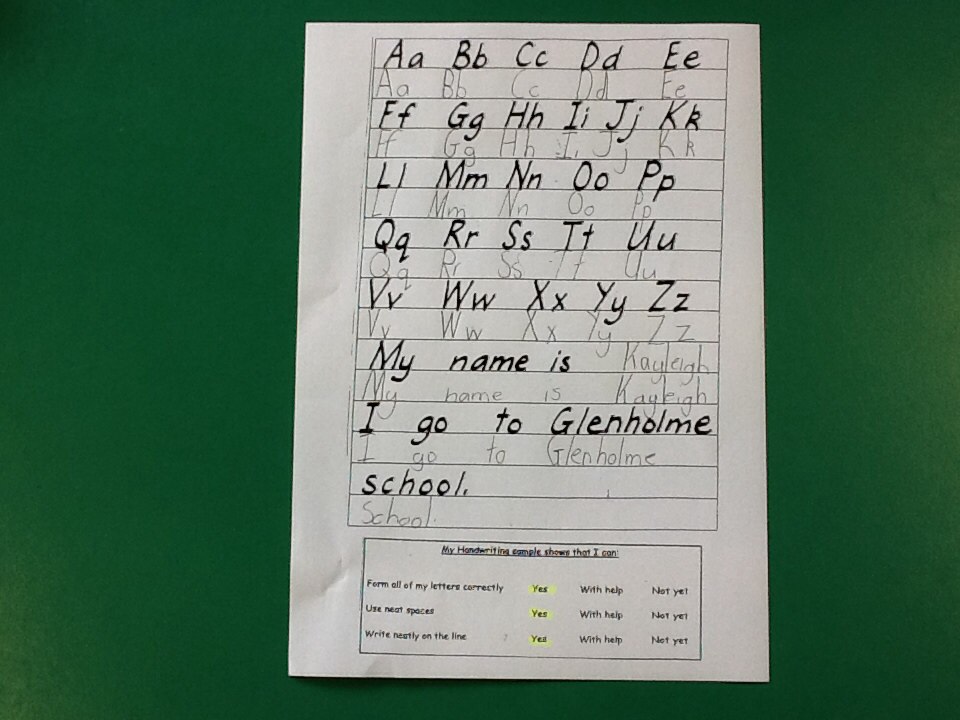 Aa Bb Cc Dd Ee
Aa Bb Cc Dd Ee
Ff Gg Hh Ii Jj Kk
Ff Gg Hh Ii Jj Kk
Ll Mm Nn Oo Pp
Ll Mm Nn Oo Pp
Qq Rr Ss Tt Uu
Qq Rr Ss Tt Uu
Vv Ww Xx Yy Zz
Vv Ww Xx Yy Zz
My name is Kayleigh
My name is Kayleigh
I go to Glenholme
I go to Glenholme
school.
School.
My Handwriting sample shows that I can:
Form all of my letters correctly Yes With help Not yet
Use neat spaces Yes With help Not yet
Write neatly on the line Yes With help Not yet